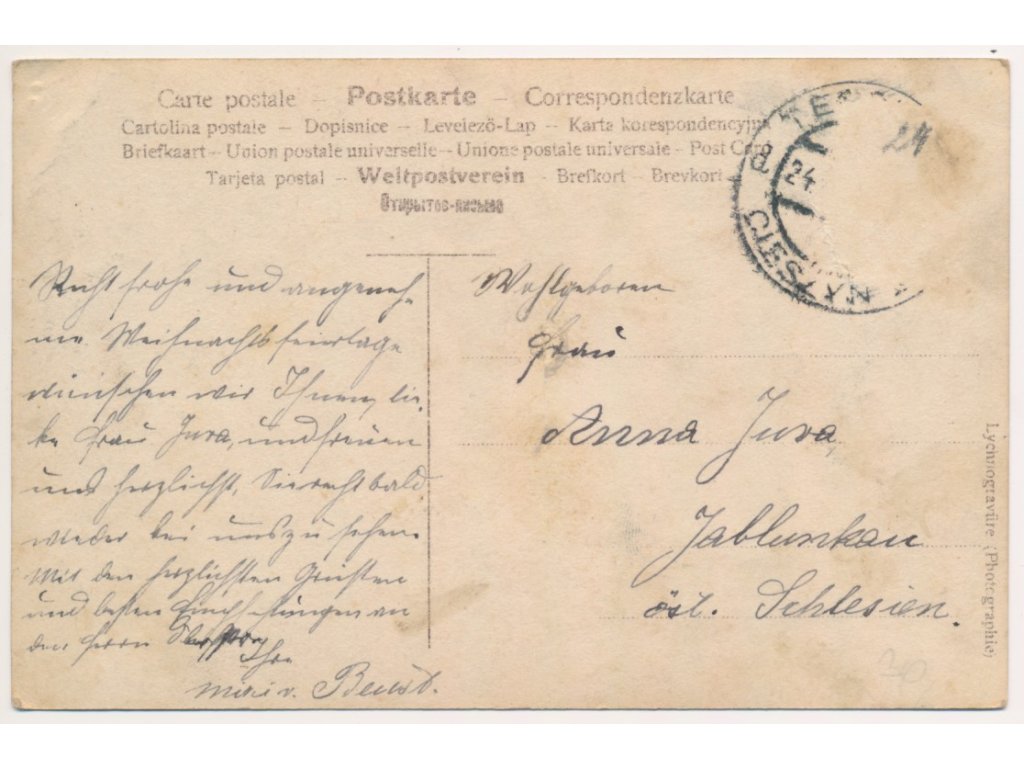 Carte postale – Postkarte – Correspondenzkarte
Cartolina postale – Dopisnice – Levelező-Lap – Karta korespondencyjna
Briefkaart – Union postale universelle – Unione postale universale – Post Card
Tarjeta postal – Weltpostverein – Brefkort – Brevkort
Открытое-письмо
24
24
Recht frohe und angeneh-
me Weihnachtsfeiertage
wünschen wir Ihnen, lie-
be Frau Jura, und freuen
uns herzlichst, Sie recht bald
wieder bei uns zu sehen.
Mit den herzlichsten Grüßen
und besten Empfehlungen an
den Herrn
Ihre
Mizi v. Beust.
Wohlgeboren
Frau
Anna Jura,
Jablunkau
öst. Schlesien.
Lychnogravüre (Photographie)
30